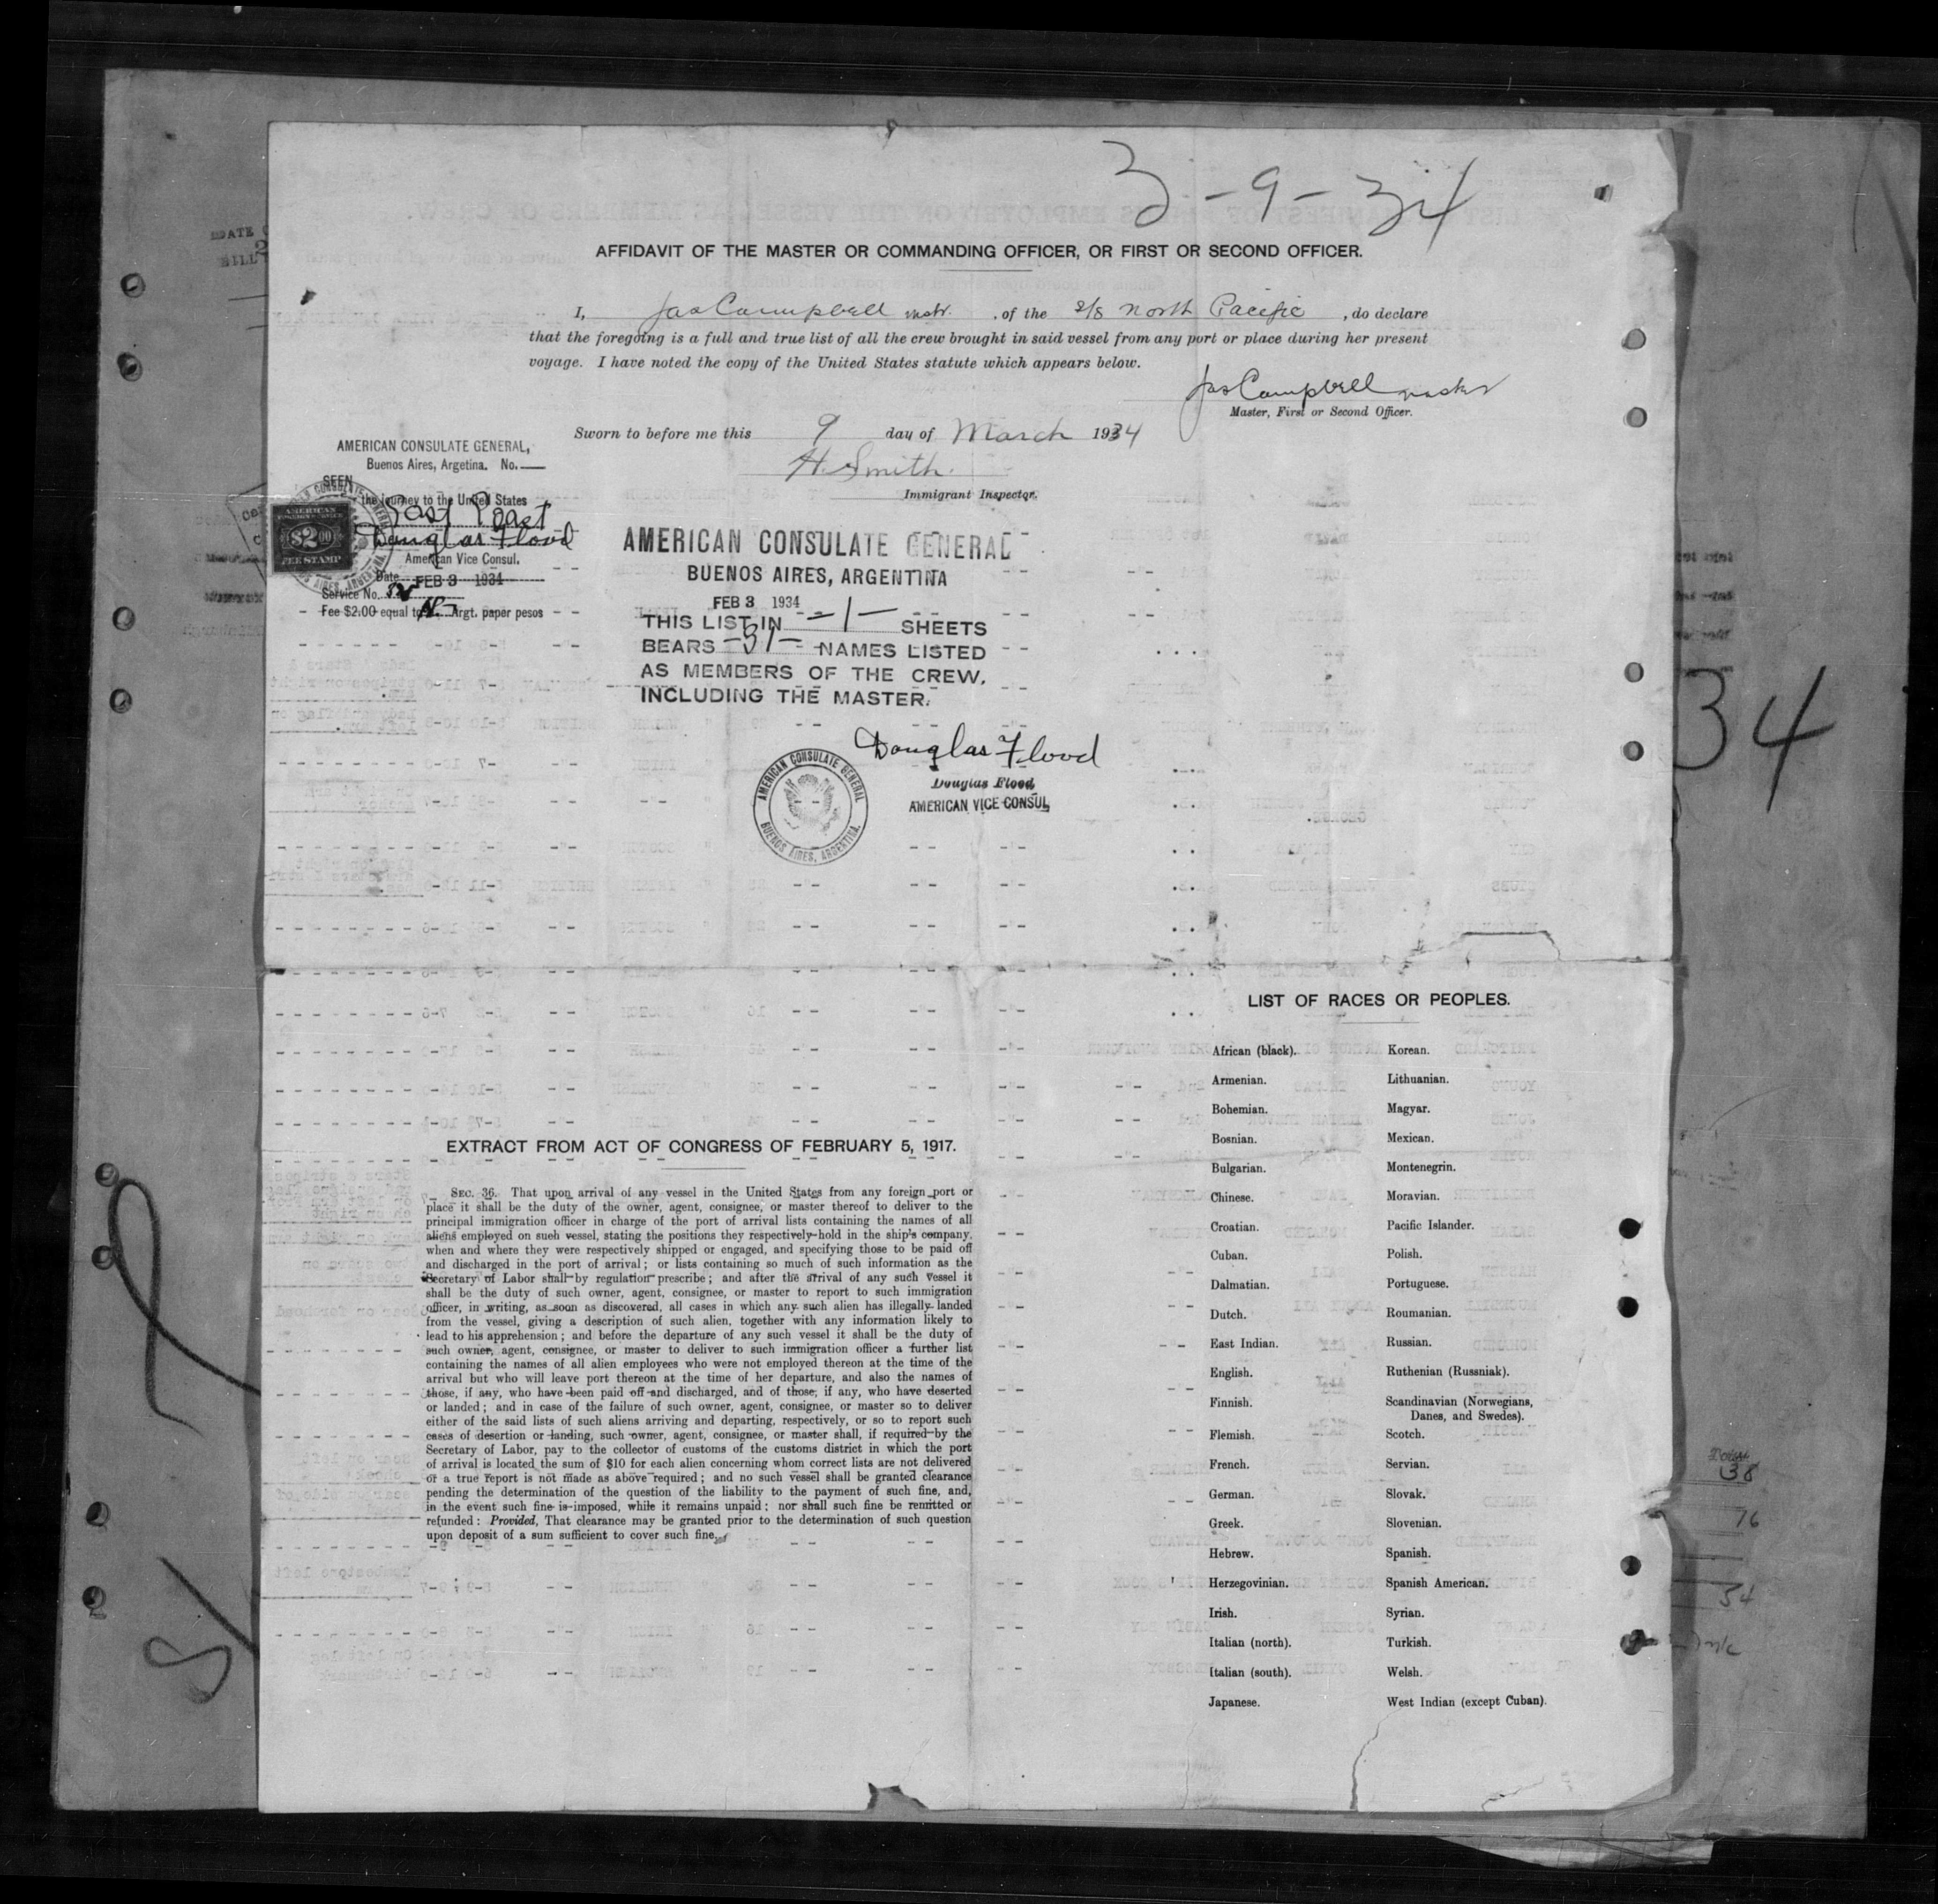 3-9-34
AFFIDAVIT OF THE MASTER OR COMMANDING OFFICER, OR FIRST OR SECOND OFFICER.
I, Jas Campbell mstr. , of the S/S North Pacific , do declare
that the foregoing is a full and true list of all the crew brought in said vessel from any port or place during her present
voyage. I have noted the copy of the United States statute which appears below.
Jas Campbell master
Master, First or Second Officer.
Sworn to before me this 9 day of March 1934
H. Smith.
Immigrant Inspector.
AMERICAN CONSULATE GENERAL,
Buenos Aires, Argetina. No.
SEEN
the journey to the United States
East Coast
Douglas Flood
American Vice Consul.
Date FEB 3 1934
Service No.
Fee $2.00 equal to Argt. paper pesos
AMERICAN
$2.00
FEE STAMP
AMERICAN CONSULATE GENERAL
BUENOS AIRES, ARGENTINA
FEB 3 1934
THIS LIST IN -1- SHEETS
BEARS -31- NAMES LISTED
AS MEMBERS OF THE CREW,
INCLUDING THE MASTER.
Douglas Flood
Douglas Flood
AMERICAN VICE CONSUL
AMERICAN CONSULATE GENERAL
BUENOS AIRES, ARGENTINA.
34
EXTRACT FROM ACT OF CONGRESS OF FEBRUARY 5, 1917.
SEC. 36. That upon arrival of any vessel in the United States from any foreign port or
place it shall be the duty of the owner, agent, consignee, or master thereof to deliver to the
principal immigration officer in charge of the port of arrival lists containing the names of all
aliens employed on such vessel, stating the positions they respectively hold in the ship's company,
when and where they were respectively shipped or engaged, and specifying those to be paid off
and discharged in the port of arrival; or lists containing so much of such information as the
Secretary of Labor shall by regulation prescribe; and after the arrival of any such vessel it
shall be the duty of such owner, agent, consignee, or master to report to such immigration
officer, in writing, as soon as discovered, all cases in which any such alien has illegally landed
from the vessel, giving a description of such alien, together with any information likely to
lead to his apprehension; and before the departure of any such vessel it shall be the duty of
such owner, agent, consignee, or master to deliver to such immigration officer a further list
containing the names of all alien employees who were not employed thereon at the time of the
arrival but who will leave port thereon at the time of her departure, and also the names of
those, if any, who have been paid off and discharged, and of those, if any, who have deserted
or landed; and in case of the failure of such owner, agent, consignee, or master so to deliver
either of the said lists of such aliens arriving and departing, respectively, or so to report such
cases of desertion or landing, such owner, agent, consignee, or master shall, if required by the
Secretary of Labor, pay to the collector of customs of the customs district in which the port
of arrival is located the sum of $10 for each alien concerning whom correct lists are not delivered
or a true report is not made as above required; and no such vessel shall be granted clearance
pending the determination of the question of the liability to the payment of such fine, and,
in the event such fine is imposed, while it remains unpaid; nor shall such fine be remitted or
refunded: Provided, That clearance may be granted prior to the determination of such question
upon deposit of a sum sufficient to cover such fine.
LIST OF RACES OR PEOPLES.
African (black). Korean.
Armenian. Lithuanian.
Bohemian. Magyar.
Bosnian. Mexican.
Bulgarian. Montenegrin.
Chinese. Moravian.
Croatian. Pacific Islander.
Cuban. Polish.
Dalmatian. Portuguese.
Dutch. Roumanian.
East Indian. Russian.
English. Ruthenian (Russniak).
Finnish. Scandinavian (Norwegians,
Danes, and Swedes).
Flemish. Scotch.
French. Servian.
German. Slovak.
Greek. Slovenian.
Hebrew. Spanish.
Herzegovinian. Spanish American.
Irish. Syrian.
Italian (north). Turkish.
Italian (south). Welsh.
Japanese. West Indian (except Cuban).
38
76
34